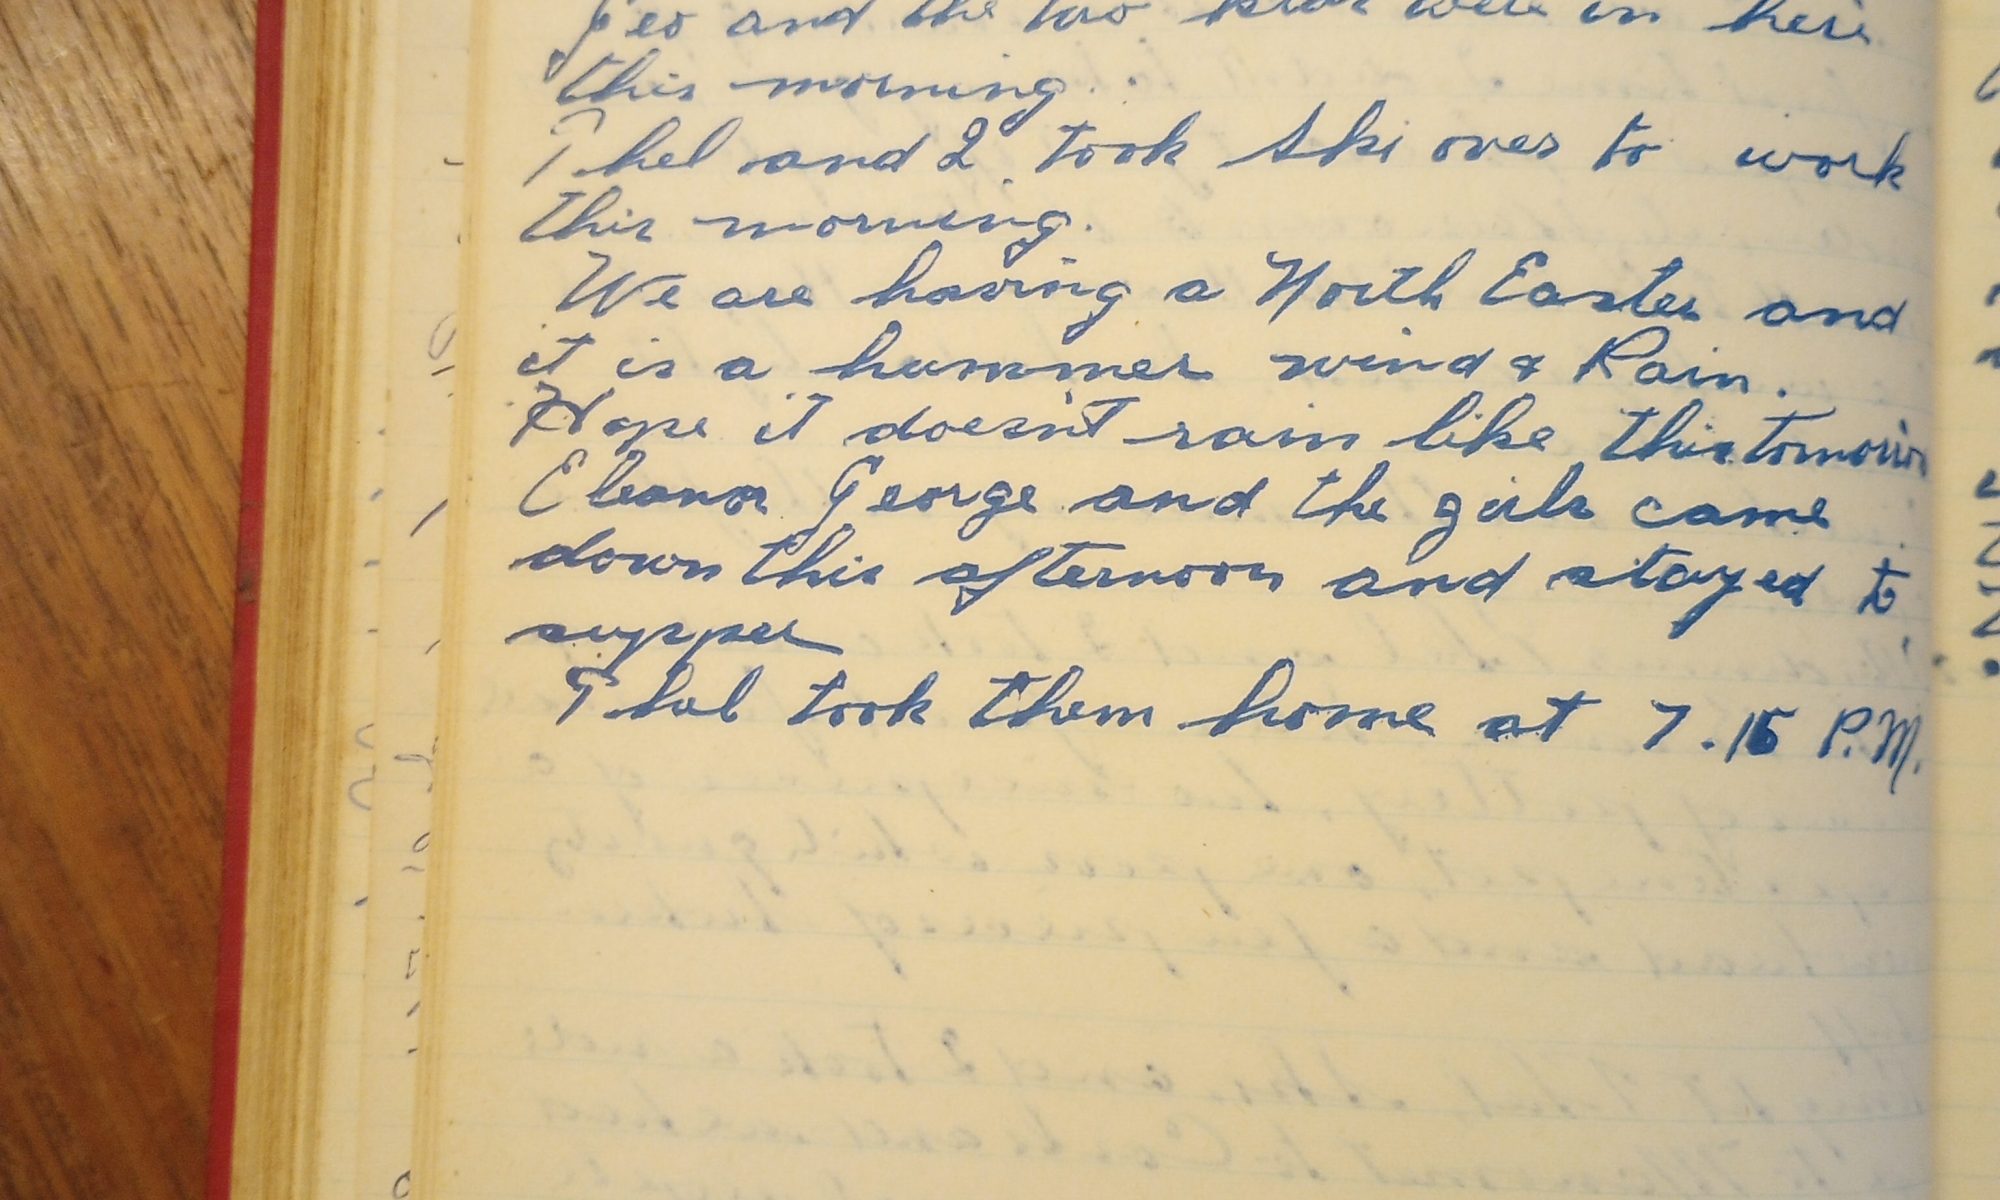 Geo and the two were in here
this morning.
Thel and I took Ski over to work
this morning.
We are having a North Easter and
it is a hummer wind & Rain.
Hope it doesn't rain like this tomorrow
Eleanor George and the girls came
down this afternoon and stayed to
supper
Thel took them home at 7.15 P.M.